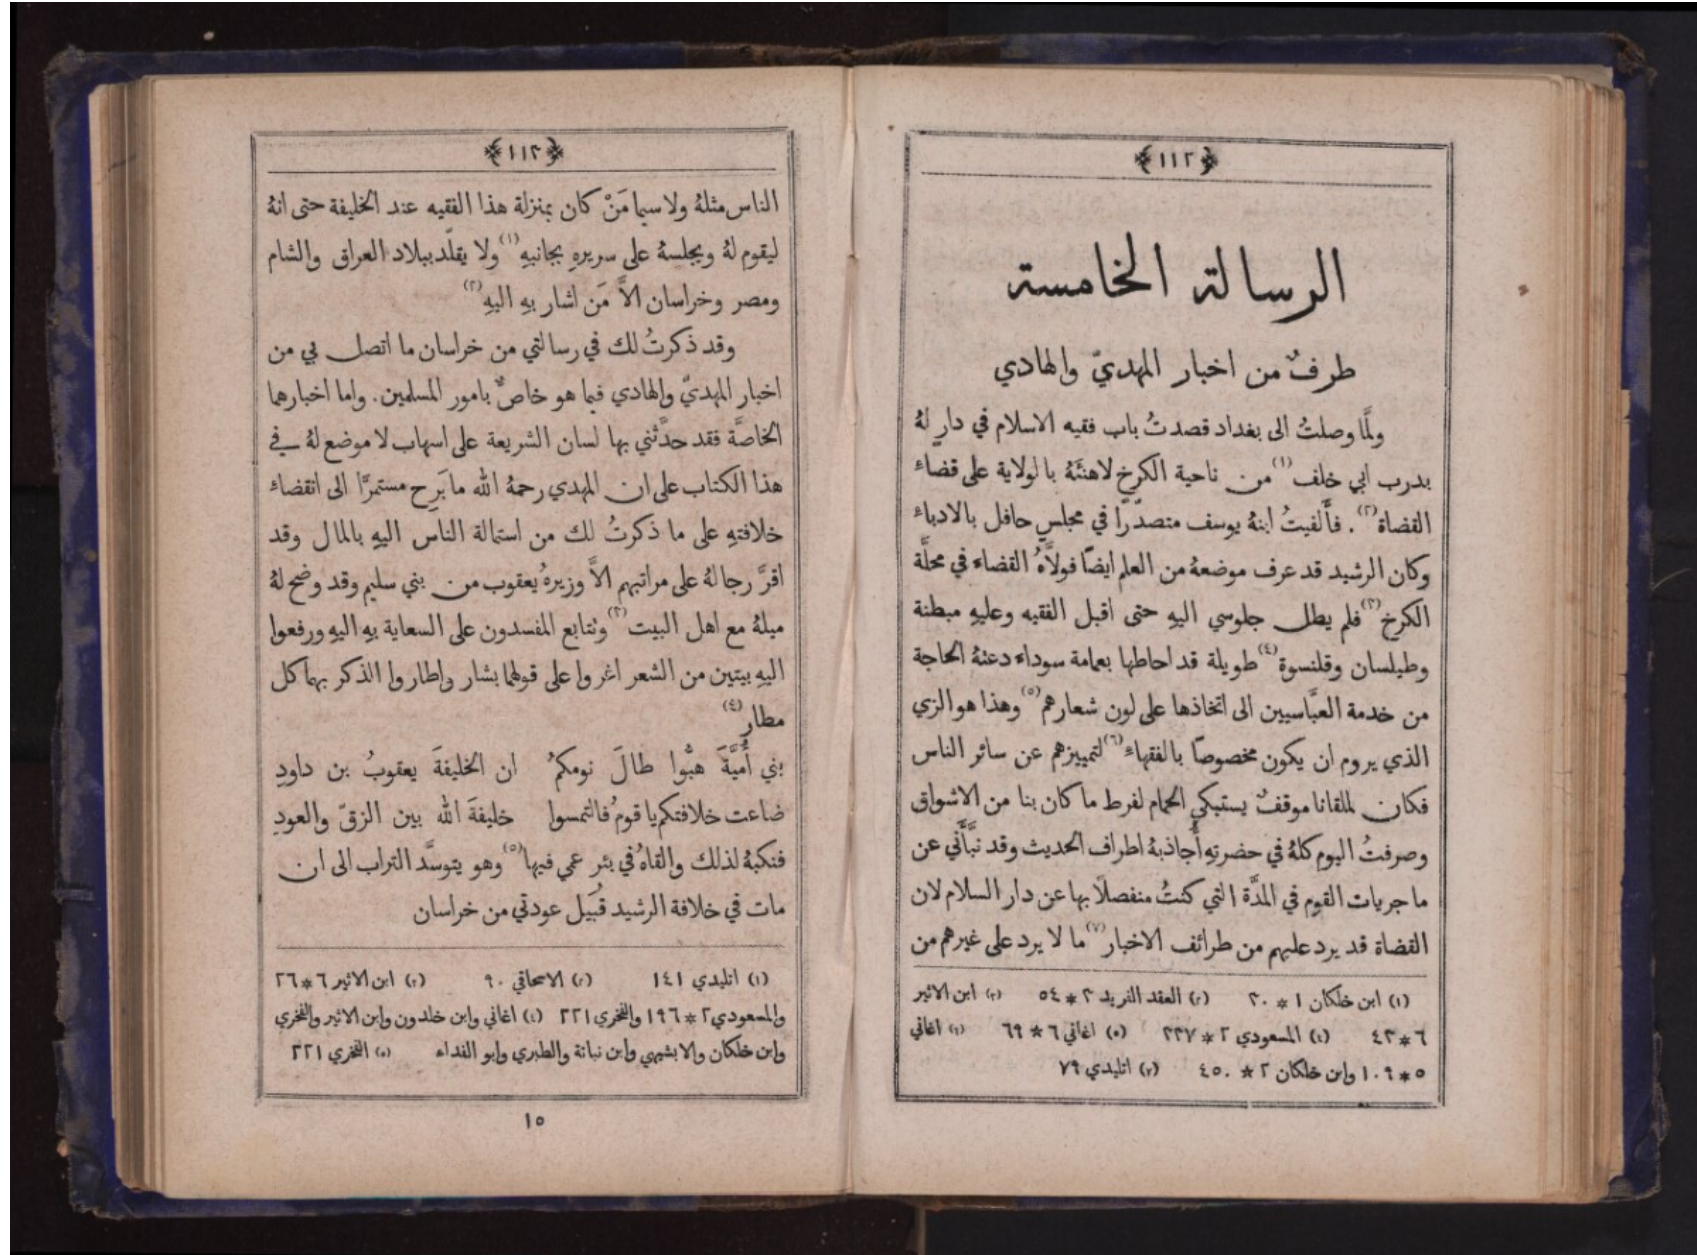 ﴿١١٢﴾
الرسالة الخامسة
طرفٌ من اخبار المهديّ والهادي
ولمَّا وصلتُ الى بغداد قصدتُ باب فقيه الاسلام في دارٍ لهُ
بدرب ابي خلف (١) من ناحية الكرخ لاهنئَهُ بالولاية على قضاءِ
القضاة (٢) . فأَلفيتُ ابنهُ يوسف متصدّرًا في مجلسٍ حافل بالادباءِ
وكان الرشيد قد عرف موضعهُ من العلم ايضًا فولاَّهُ القضاء في محلَّة
الكرخ (٣) فلم يطل جلوسي اليهِ حتى اقبل الفقيه وعليهِ مبطنة
وطيلسان وقلنسوة (٤) طويلة قد احاطها بعمامة سوداء دعتهُ الحاجة
من خدمة العبَّاسيين الى اتخاذها على لون شعارهم (٥) وهذا هو الزي
الذي يروم ان يكون مخصوصًا بالفقهاءِ (٦) لتمييزهم عن سائر الناس
فكان لملقانا موقفٌ يستبكي الحمام لفرط ما كان بنا من الاشواق
وصرفتُ اليوم كلهُ في حضرتهِ أُجاذبهُ اطراف الحديث وقد نبَّأَني عن
ماجريات القوم في المدَّة التي كنتُ منفصلاً بها عن دار السلام لان
القضاة قد يرد عليهم من طرائف الاخبار (٧) ما لا يرد على غيرهم من
(١) ابن خلكان ١ * ٣٠ (٢) العقد الفريد ٣ * ٥٤ (٣) ابن الاثير
٦ * ٤٣ (٤) المسعودي ٢ * ٢٣٧ (٥) اغاني ٦ * ٦٩ (٦) اغاني
٥ * ١٠٩ وابن خلكان ٢ * ٤٥٠ (٧) اتليدي ٧٩
﴿١١٣﴾
الناس مثلهُ ولا سيما مَنْ كان بمنزلة هذا الفقيه عند الخليفة حتى انهُ
ليقوم لهُ ويجلسهُ على سريرهِ بجانبهِ (١) ولا يقلَّد ببلاد العراق والشام
ومصر وخراسان الاَّ مَن اشار بهِ اليهِ (٢)
وقد ذكرتُ لك في رسالتي من خراسان ما اتصل بي من
اخبار المهديّ والهادي فيما هو خاصٌ بامور المسلمين . واما اخبارهما
الخاصَّة فقد حدَّثني بها لسان الشريعة على اسهاب لا موضع لهُ في
هذا الكتاب على ان المهدي رحمهُ الله ما بَرِح مستمرًّا الى انقضاءِ
خلافتهِ على ما ذكرتُ لك من استمالة الناس اليهِ بالمال وقد
اقرَّ رجالهُ على مراتبهم الاَّ وزيرهُ يعقوب من بني سليم وقد وضح لهُ
ميلهُ مع اهل البيت (٣) وتتابع المفسدون على السعاية بهِ اليهِ ورفعوا
اليهِ بيتين من الشعر اغروا على قولهما بشار واطاروا الذكر بهما كل
مطار (٤)
بني أُميَّةَ هبُّوا طالَ نومكمُ ان الخليفةَ يعقوبُ بن داودِ
ضاعت خلافتكم يا قومُ فالتمسوا خليفةَ الله بين الزقّ والعودِ
فنكبهُ لذلك والقاهُ في بئر عمي فيها (٥) وهو يتوسَّد التراب الى ان
مات في خلافة الرشيد قُبَيل عودتي من خراسان
(١) اتليدي ١٤١ (٢) الاسحاقي ٩٠ (٣) ابن الاثير ٦ * ٢٦
والمسعودي ٢ * ١٩٦ والفخري ٢٢١ (٤) اغاني وابن خلدون وابن الاثير والفخري
وابن خلكان والابشيهي وابن نباتة والطبري وابو الفداء (٥) الفخري ٢٢١
١٥